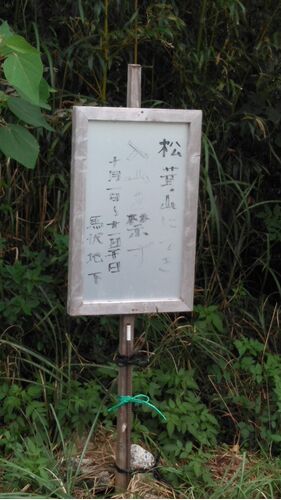 松茸山につき
入山を禁ず
十月一日〜十一月五日
馬沢地下